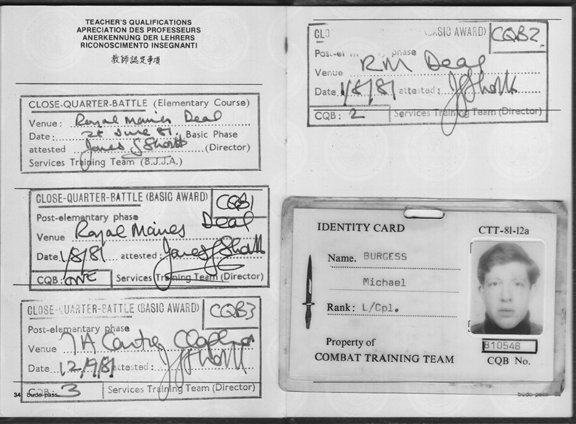 TEACHER'S QUALIFICATIONS
APRECIATION DES PROFESSEURS
ANERKENNUNG DER LEHRERS
RICONOSCIMENTO INSEGNANTI
CLOSE-QUARTER-BATTLE (Elementary Course)
Venure: Royal Marines Deal
Date: 2 June 81. Basic Phase
attested James Shortt (Director)
Services Training Team (B.J.J.A.)
CLOSE-QUARTER-BATTLE (BASIC AWARD) CQB1
Post-elementary phase
Venue Royal Marines Deal
Date 1/8/81 attested: James Shortt
CQB: ONE Services Training Team (Director)
CLOSE-QUARTER-BATTLE (BASIC AWARD) CQB3
Post-elementary phase
Venue TA Centre
Date 12/9/81 attested:
CQB: 3 Services Training Team (Director)
34 budo pass
(BASIC AWARD) CQB2
phase
Venue RM Deal
Date 1/8/81 attested:
CQB: 2 Services Training Team (Director)
IDENTITY CARD CTT-81-12a
Name. BURGESS
Michael
Rank: L/Cpl.
810546
Property of
COMBAT TRAINING TEAM CQB No.
budo-pass